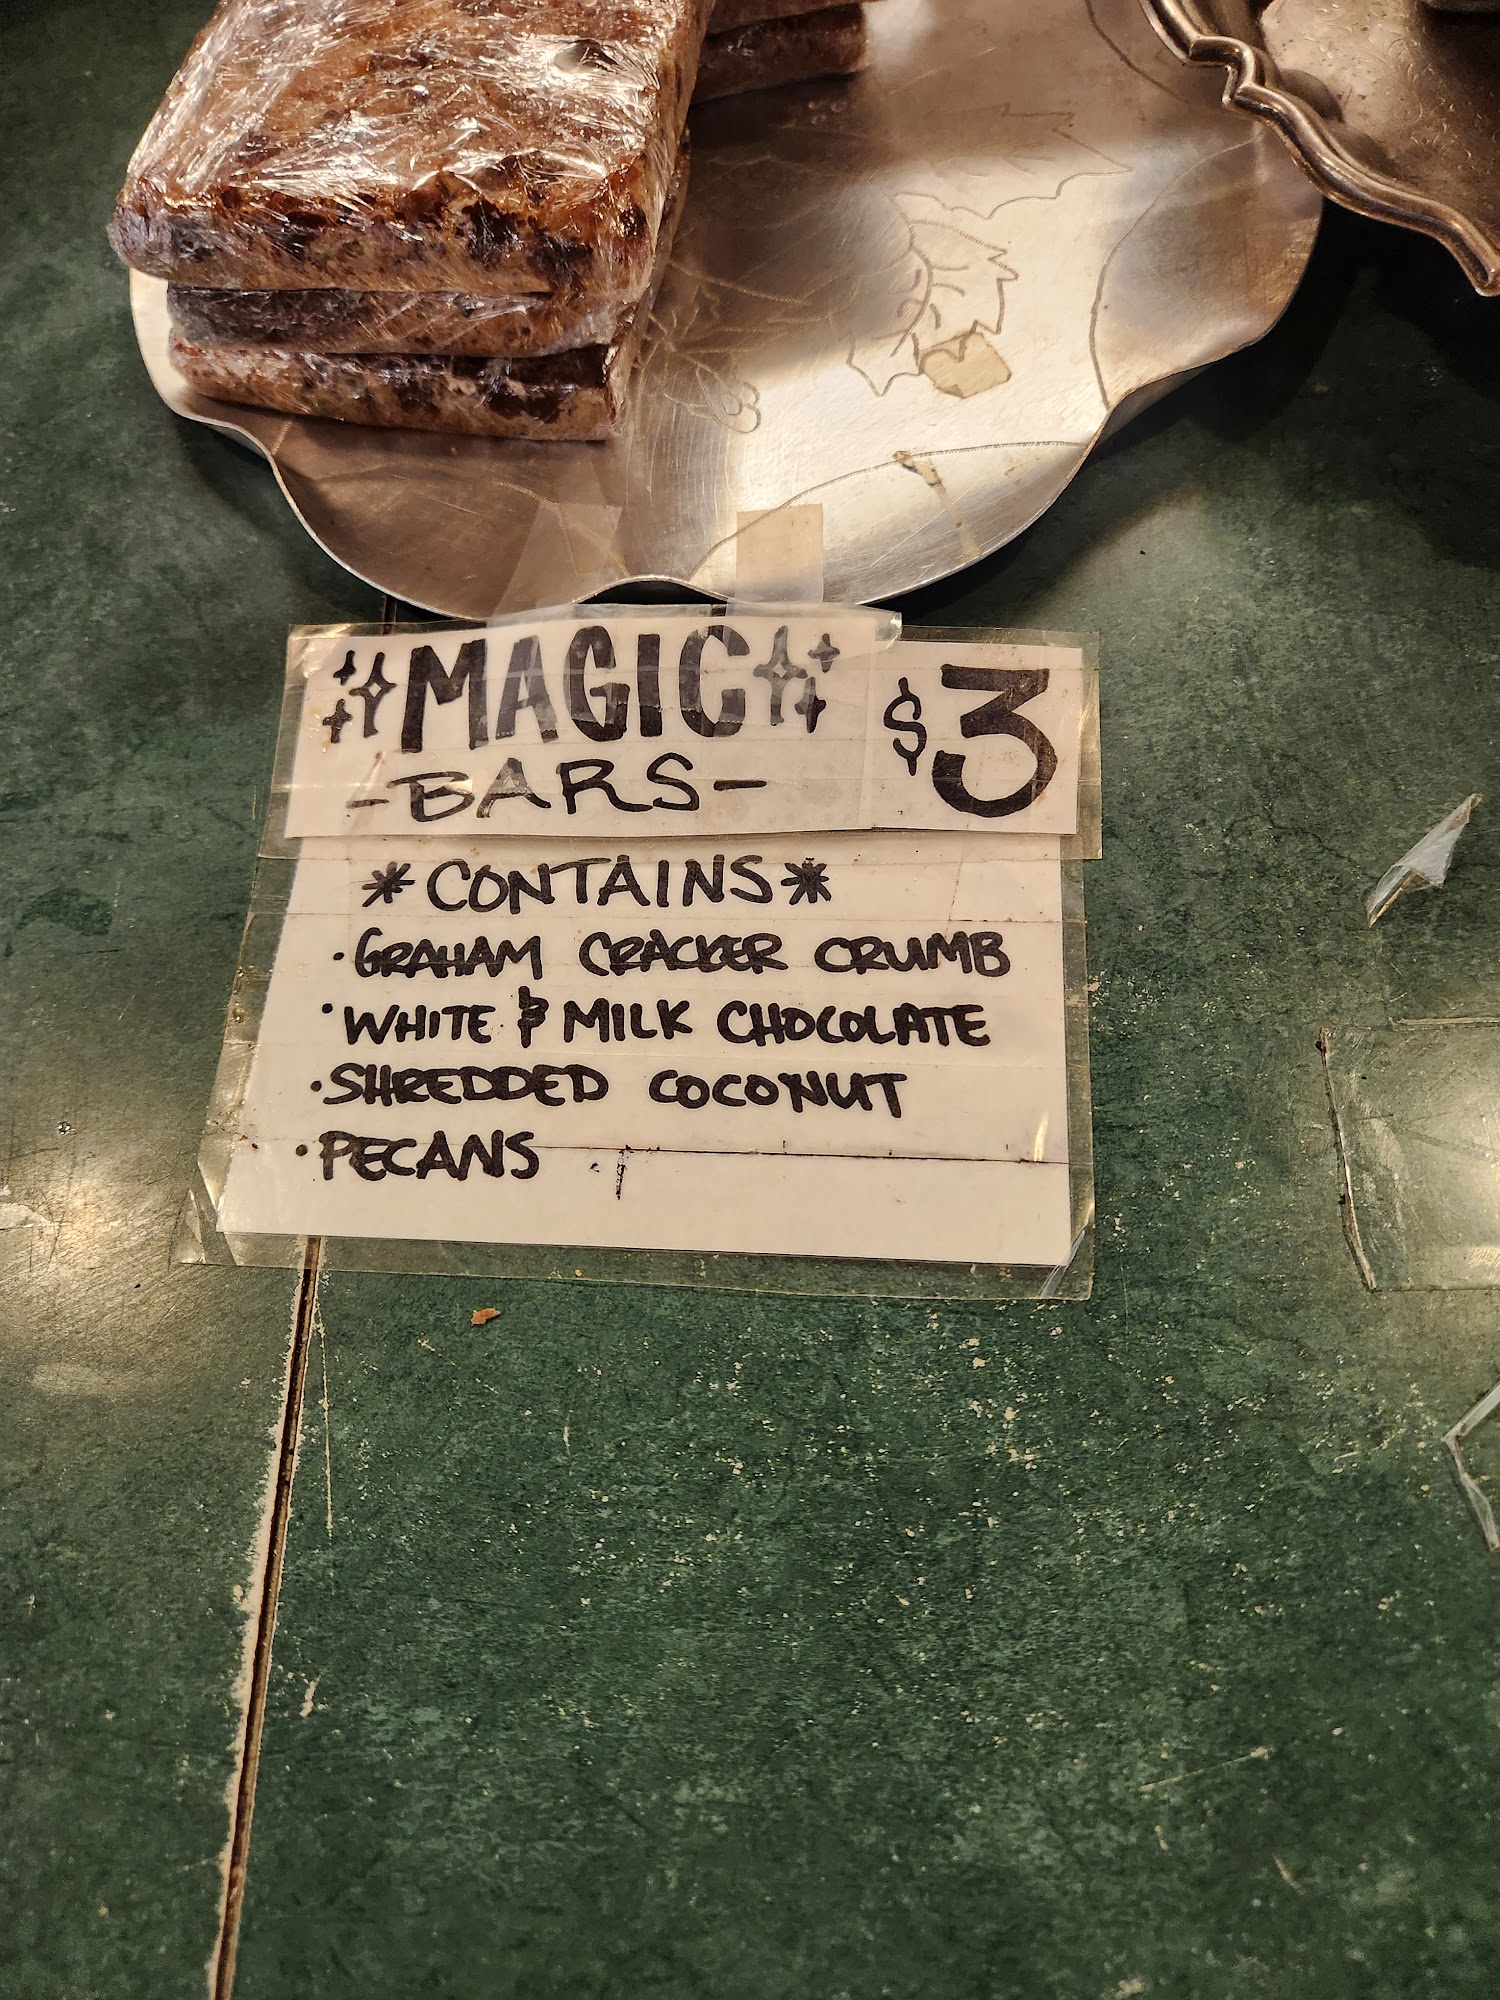 MAGIC $3
-BARS-
*CONTAINS*
·GRAHAM CRACKER CRUMB
·WHITE & MILK CHOCOLATE
·SHREDDED COCONUT
·PECANS